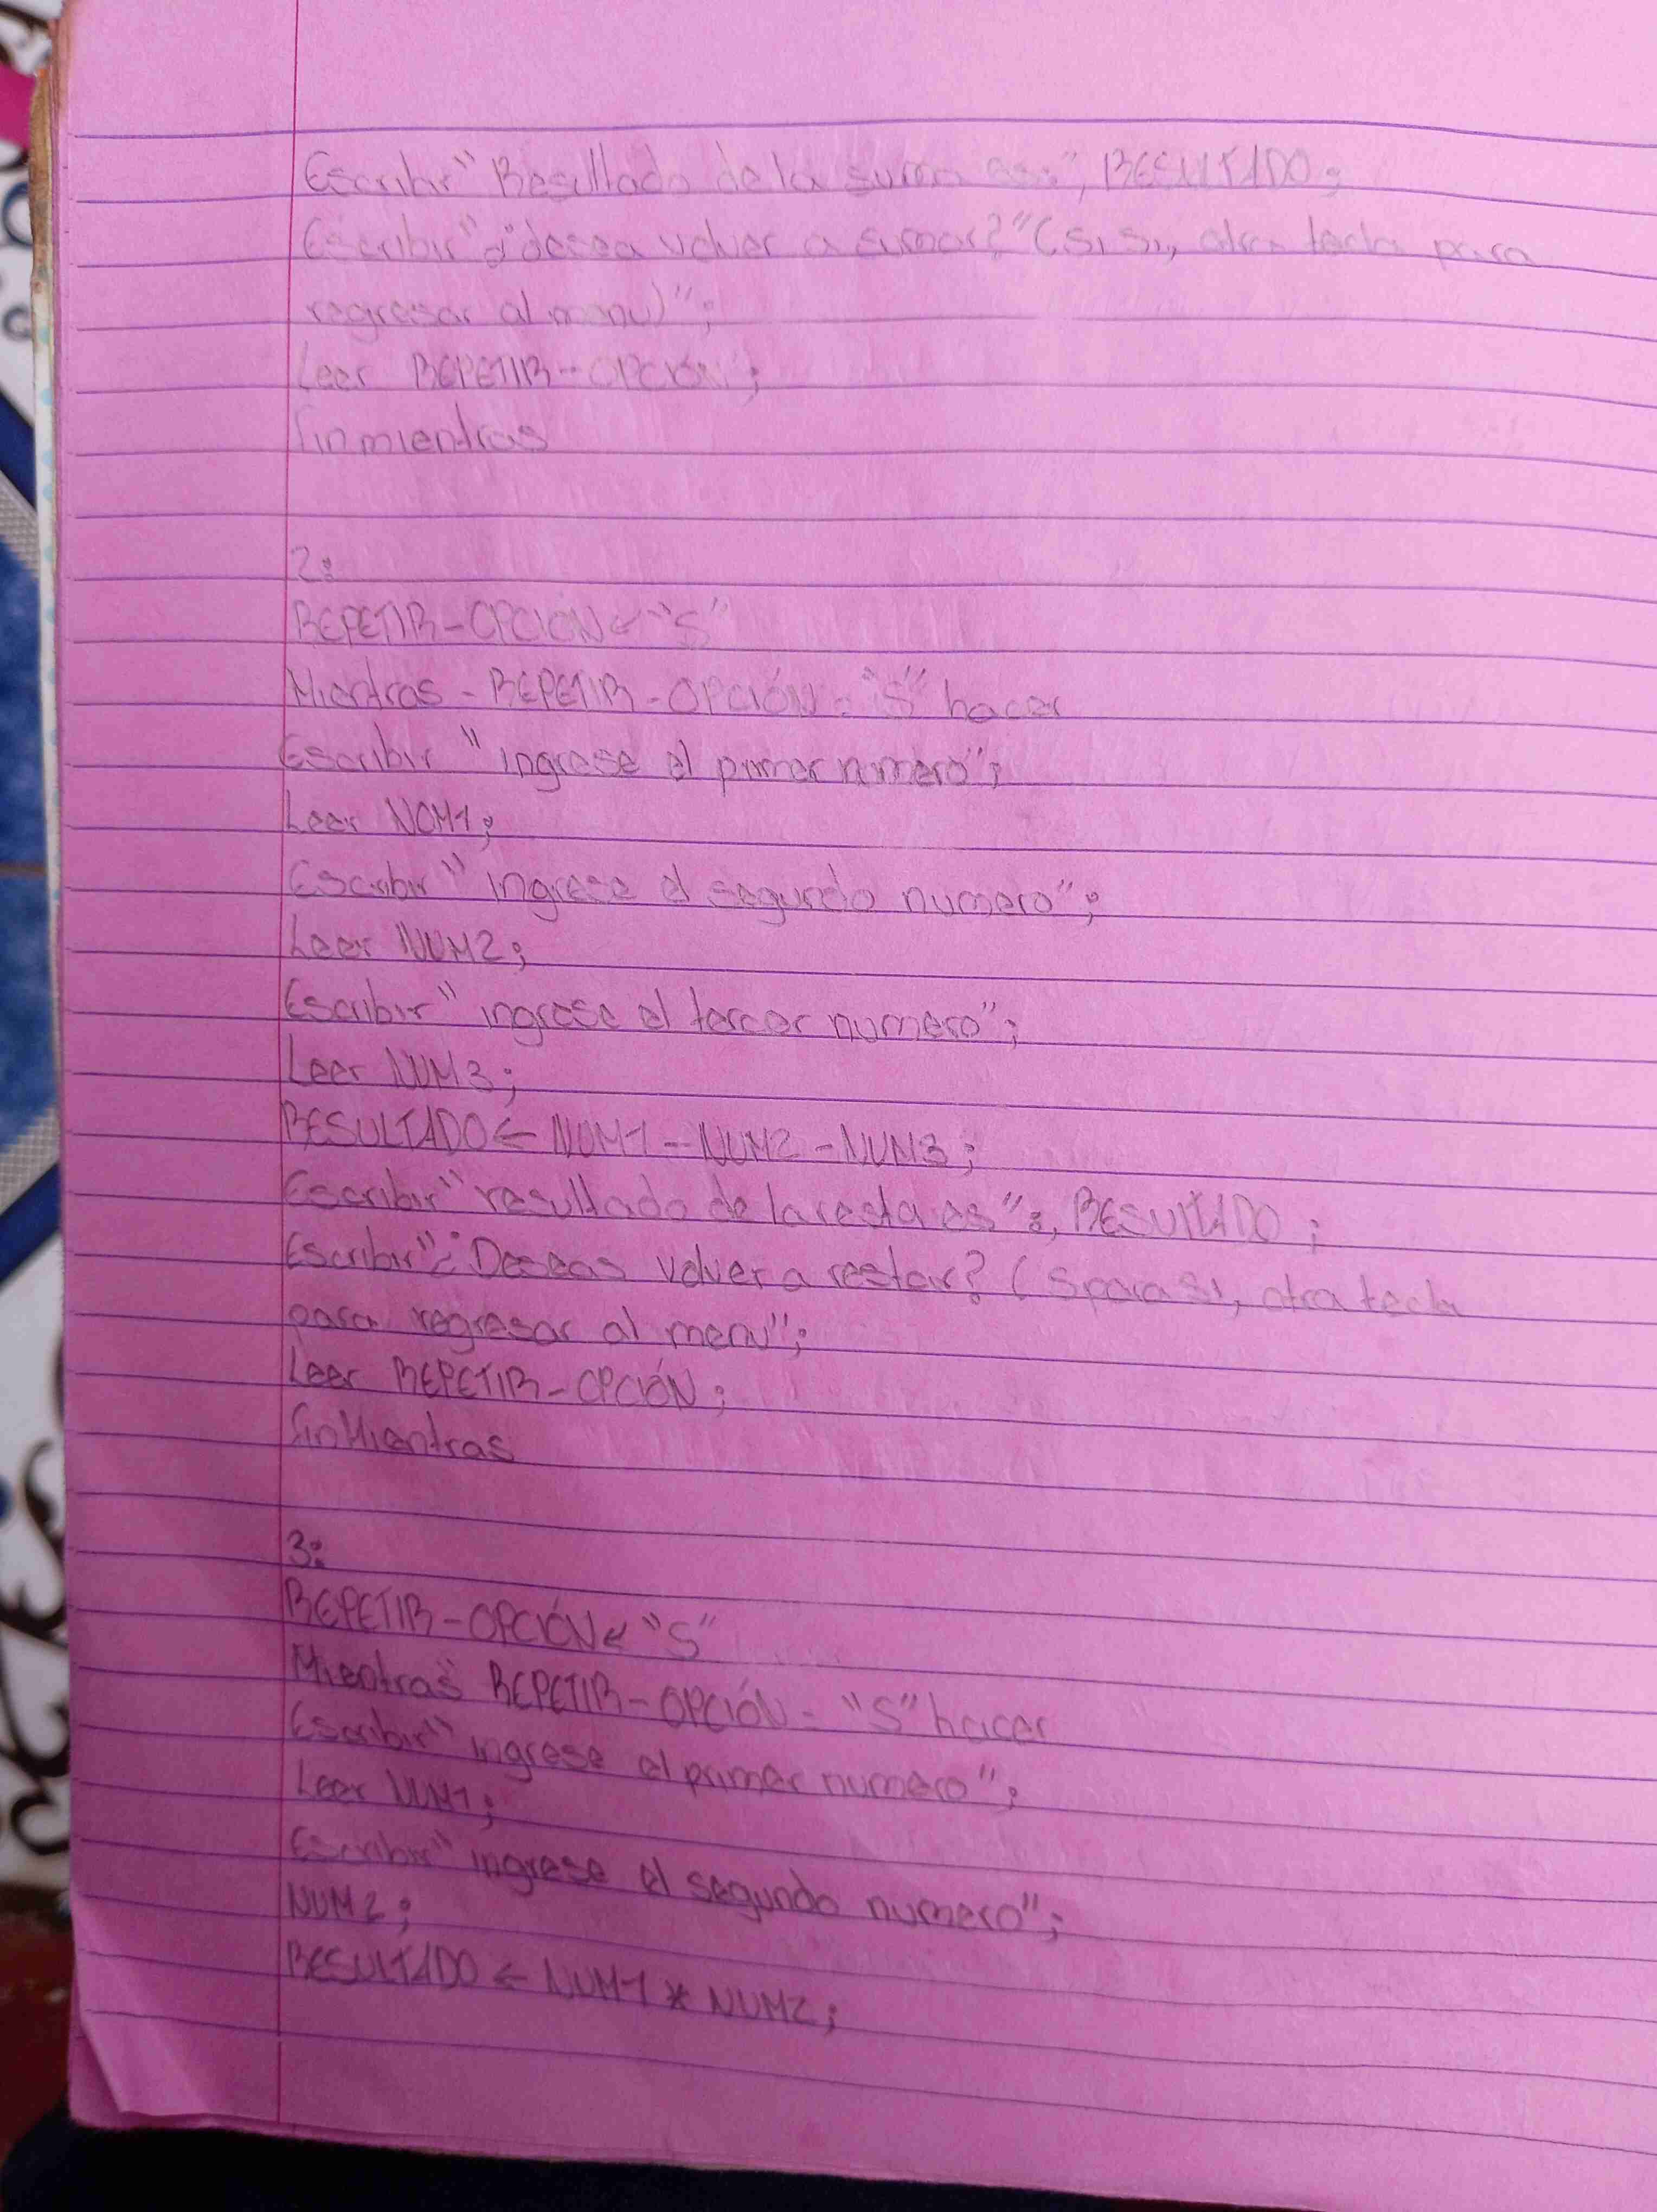 Escribir" Resultado de la suma es:", RESULTADO;
Escribir"¿"desea volver a sumar?"(S, Si,, otra tecla para
regresar al menu)";
Leer REPETIR-OPCIÓN;
finmientras
2:
REPETIR-OPCIÓN↙"S"
Mientras - REPETIR-OPCIÓN = "S" hacer
Escribir "ingrese el primer numero";
Leer NUM1;
Escribir" ingrese el segundo numero";
Leer NUM2;
Escribir" ingrese el tercer numero";
Leer NUM3;
RESULTADO← NUM1 - NUM2 - NUM3;
Escribir"resultado de la resta es":, RESULTADO;
Escribir"¿Deseas volver a restar? (S para Si, otra tecla
para regresar al menu";
Leer REPETIR-OPCIÓN;
finMientras
3:
REPETIR-OPCIÓN↙"S"
Mientras REPETIR-OPCIÓN = "S" hacer
Escribir" ingrese el primer numero";
Leer NUM1;
Escribir" ingrese el segundo numero";
NUM2;
RESULTADO ← NUM1 * NUM2;